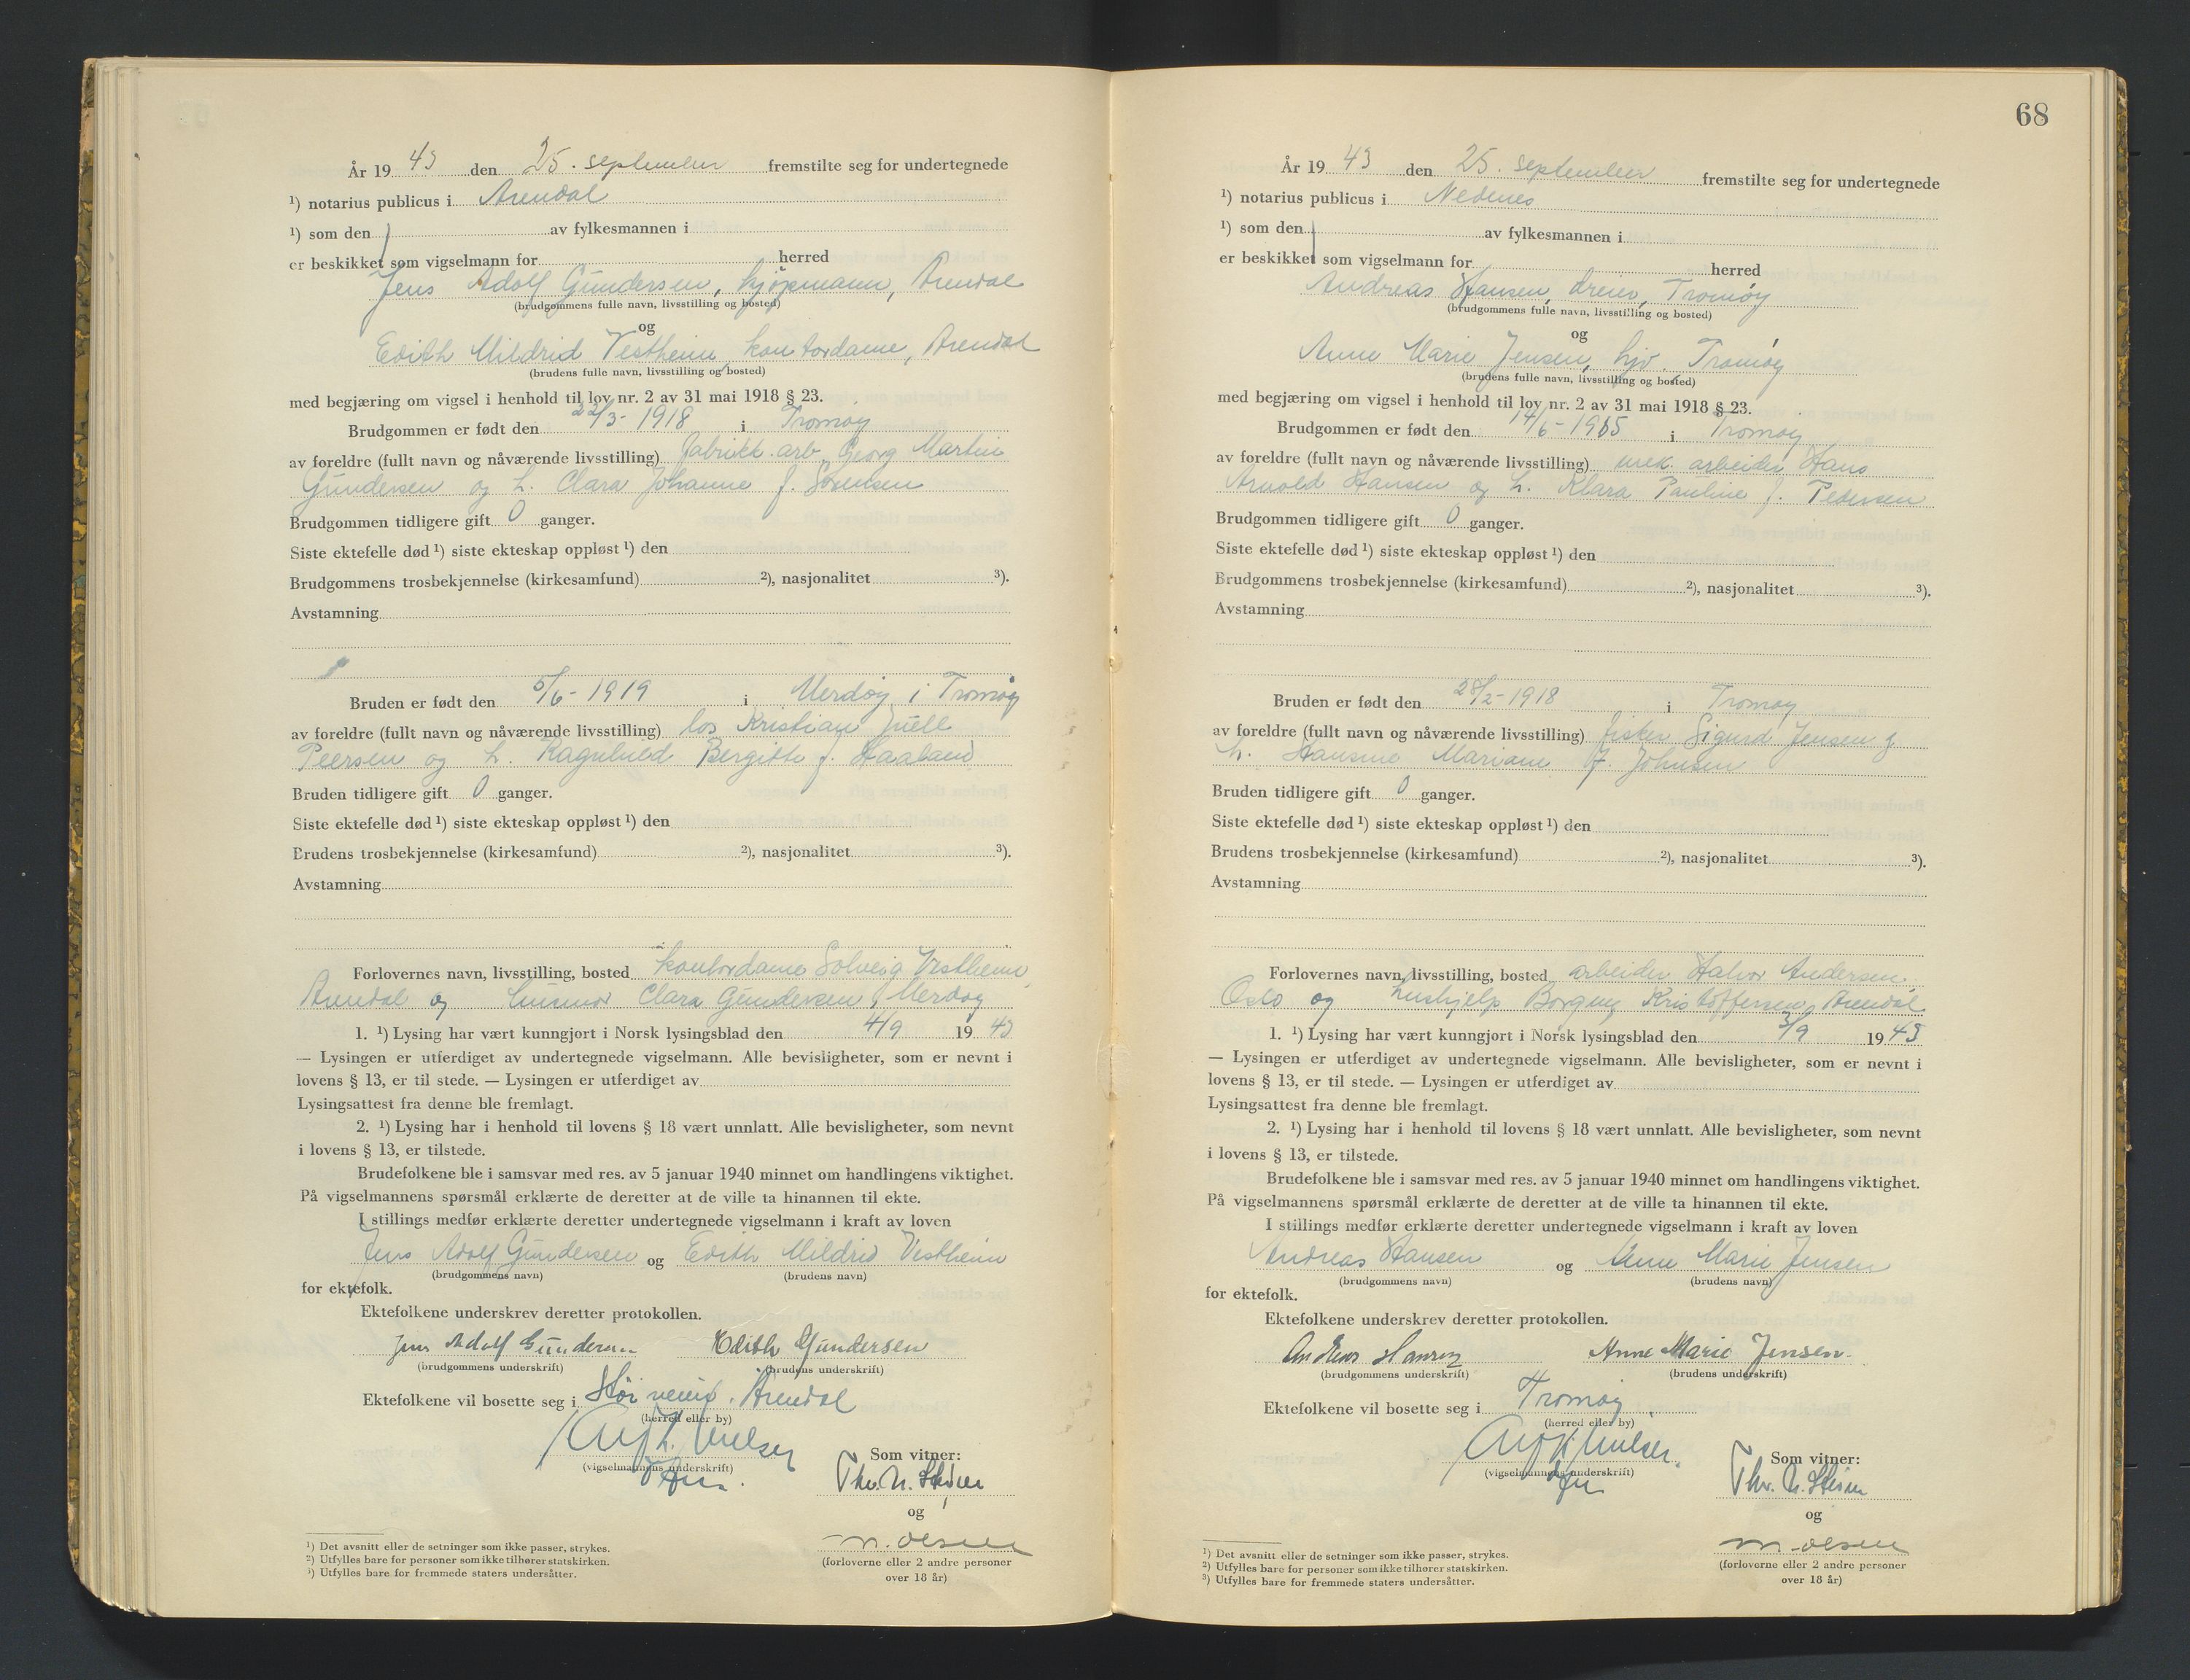 År 19 43 den 25. september fremstilte seg for undertegnede
¹) notarius publicus i Arendal
¹) som den av fylkesmannen i
er beskikket som vigselmann for herred
Jens Adolf Gundersen, kjøpmann, Arendal
(brudgommens fulle navn, livsstilling og bosted)
og
Edith Mildrid Vestheim, kontordame, Arendal
(brudens fulle navn, livsstilling og bosted)
med begjæring om vigsel i henhold til lov nr. 2 av 31 mai 1918 § 23.
Brudgommen er født den 22/3-1918 i Tromøy
av foreldre (fullt navn og nåværende livsstilling) fabrikk.arb. Georg Martin
Gundersen og h. Clara Johanne f. Sørensen
Brudgommen tidligere gift 0 ganger.
Siste ektefelle død ¹) siste ekteskap oppløst ¹) den
Brudgommens trosbekjennelse (kirkesamfund) ²), nasjonalitet ³).
Avstamning
Bruden er født den 5/6-1919 i Merdøy i Tromøy
av foreldre (fullt navn og nåværende livsstilling) los Kristian Juell
Peersen og h. Ragnhild Bergith f. Haaland
Bruden tidligere gift 0 ganger.
Siste ektefelle død ¹) siste ekteskap oppløst ¹) den
Brudens trosbekjennelse (kirkesamfund) ²), nasjonalitet ³).
Avstamning
Forlovernes navn, livsstilling, bosted kontordame Solveig Vestheim,
Arendal og husmor Clara Gundersen, Merdøy
1. ¹) Lysing har vært kunngjort i Norsk lysingsblad den 4/9 19 43
— Lysingen er utferdiget av undertegnede vigselmann. Alle bevisligheter, som er nevnt i
lovens § 13, er til stede. — Lysingen er utferdiget av
Lysingsattest fra denne ble fremlagt.
2. ¹) Lysing har i henhold til lovens § 18 vært unnlatt. Alle bevisligheter, som nevnt
i lovens § 13, er tilstede.
Brudefolkene ble i samsvar med res. av 5 januar 1940 minnet om handlingens viktighet.
På vigselmannens spørsmål erklærte de deretter at de ville ta hinannen til ekte.
I stillings medfør erklærte deretter undertegnede vigselmann i kraft av loven
Jens Adolf Gundersen og Edith Mildrid Vestheim
(brudgommens navn) (brudens navn)
for ektefolk.
Ektefolkene underskrev deretter protokollen.
Jens Adolf Gundersen Edith Gundersen
(brudgommens underskrift) (brudens underskrift)
Ektefolkene vil bosette seg i Arendal
(herred eller by)
(vigselmannens underskrift)
Som vitner:
Thv. N.
og
M. Olsen
(forloverne eller 2 andre personer
over 18 år)
¹) Det avsnitt eller de setninger som ikke passer, strykes.
²) Utfylles bare for personer som ikke tilhører statskirken.
³) Utfylles bare for fremmede staters undersåtter.
68
År 19 43 den 25. september fremstilte seg for undertegnede
¹) notarius publicus i Nedenes
¹) som den av fylkesmannen i
er beskikket som vigselmann for herred
Andreas Hansen, dreier, Tromøy
(brudgommens fulle navn, livsstilling og bosted)
og
Anne Marie Jensen, hjv. Tromøy
(brudens fulle navn, livsstilling og bosted)
med begjæring om vigsel i henhold til lov nr. 2 av 31 mai 1918 § 23.
Brudgommen er født den 14/6-1915 i Tromøy
av foreldre (fullt navn og nåværende livsstilling) mek. arbeider Hans
Arnold Hansen og h. Klara Pauline f. Pedersen
Brudgommen tidligere gift 0 ganger.
Siste ektefelle død ¹) siste ekteskap oppløst ¹) den
Brudgommens trosbekjennelse (kirkesamfund) ²), nasjonalitet ³).
Avstamning
Bruden er født den 28/2-1918 i Tromøy
av foreldre (fullt navn og nåværende livsstilling) fisker Sigurd Jensen og
h. Hansine Mariane f. Johnsen
Bruden tidligere gift 0 ganger.
Siste ektefelle død ¹) siste ekteskap oppløst ¹) den
Brudens trosbekjennelse (kirkesamfund) ²), nasjonalitet ³).
Avstamning
Forlovernes navn, livsstilling, bosted arbeider Halvor Andersen,
Oslo og hushjelp Borgny Kristoffersen, Arendal
1. ¹) Lysing har vært kunngjort i Norsk lysingsblad den 3/9 19 43
— Lysingen er utferdiget av undertegnede vigselmann. Alle bevisligheter, som er nevnt i
lovens § 13, er til stede. — Lysingen er utferdiget av
Lysingsattest fra denne ble fremlagt.
2. ¹) Lysing har i henhold til lovens § 18 vært unnlatt. Alle bevisligheter, som nevnt
i lovens § 13, er tilstede.
Brudefolkene ble i samsvar med res. av 5 januar 1940 minnet om handlingens viktighet.
På vigselmannens spørsmål erklærte de deretter at de ville ta hinannen til ekte.
I stillings medfør erklærte deretter undertegnede vigselmann i kraft av loven
Andreas Hansen og Anne Marie Jensen
(brudgommens navn) (brudens navn)
for ektefolk.
Ektefolkene underskrev deretter protokollen.
Andreas Hansen Anne Marie Jensen
(brudgommens underskrift) (brudens underskrift)
Ektefolkene vil bosette seg i Tromøy
(herred eller by)
(vigselmannens underskrift)
Som vitner:
Thv. N.
og
M. Olsen
(forloverne eller 2 andre personer
over 18 år)
¹) Det avsnitt eller de setninger som ikke passer, strykes.
²) Utfylles bare for personer som ikke tilhører statskirken.
³) Utfylles bare for fremmede staters undersåtter.